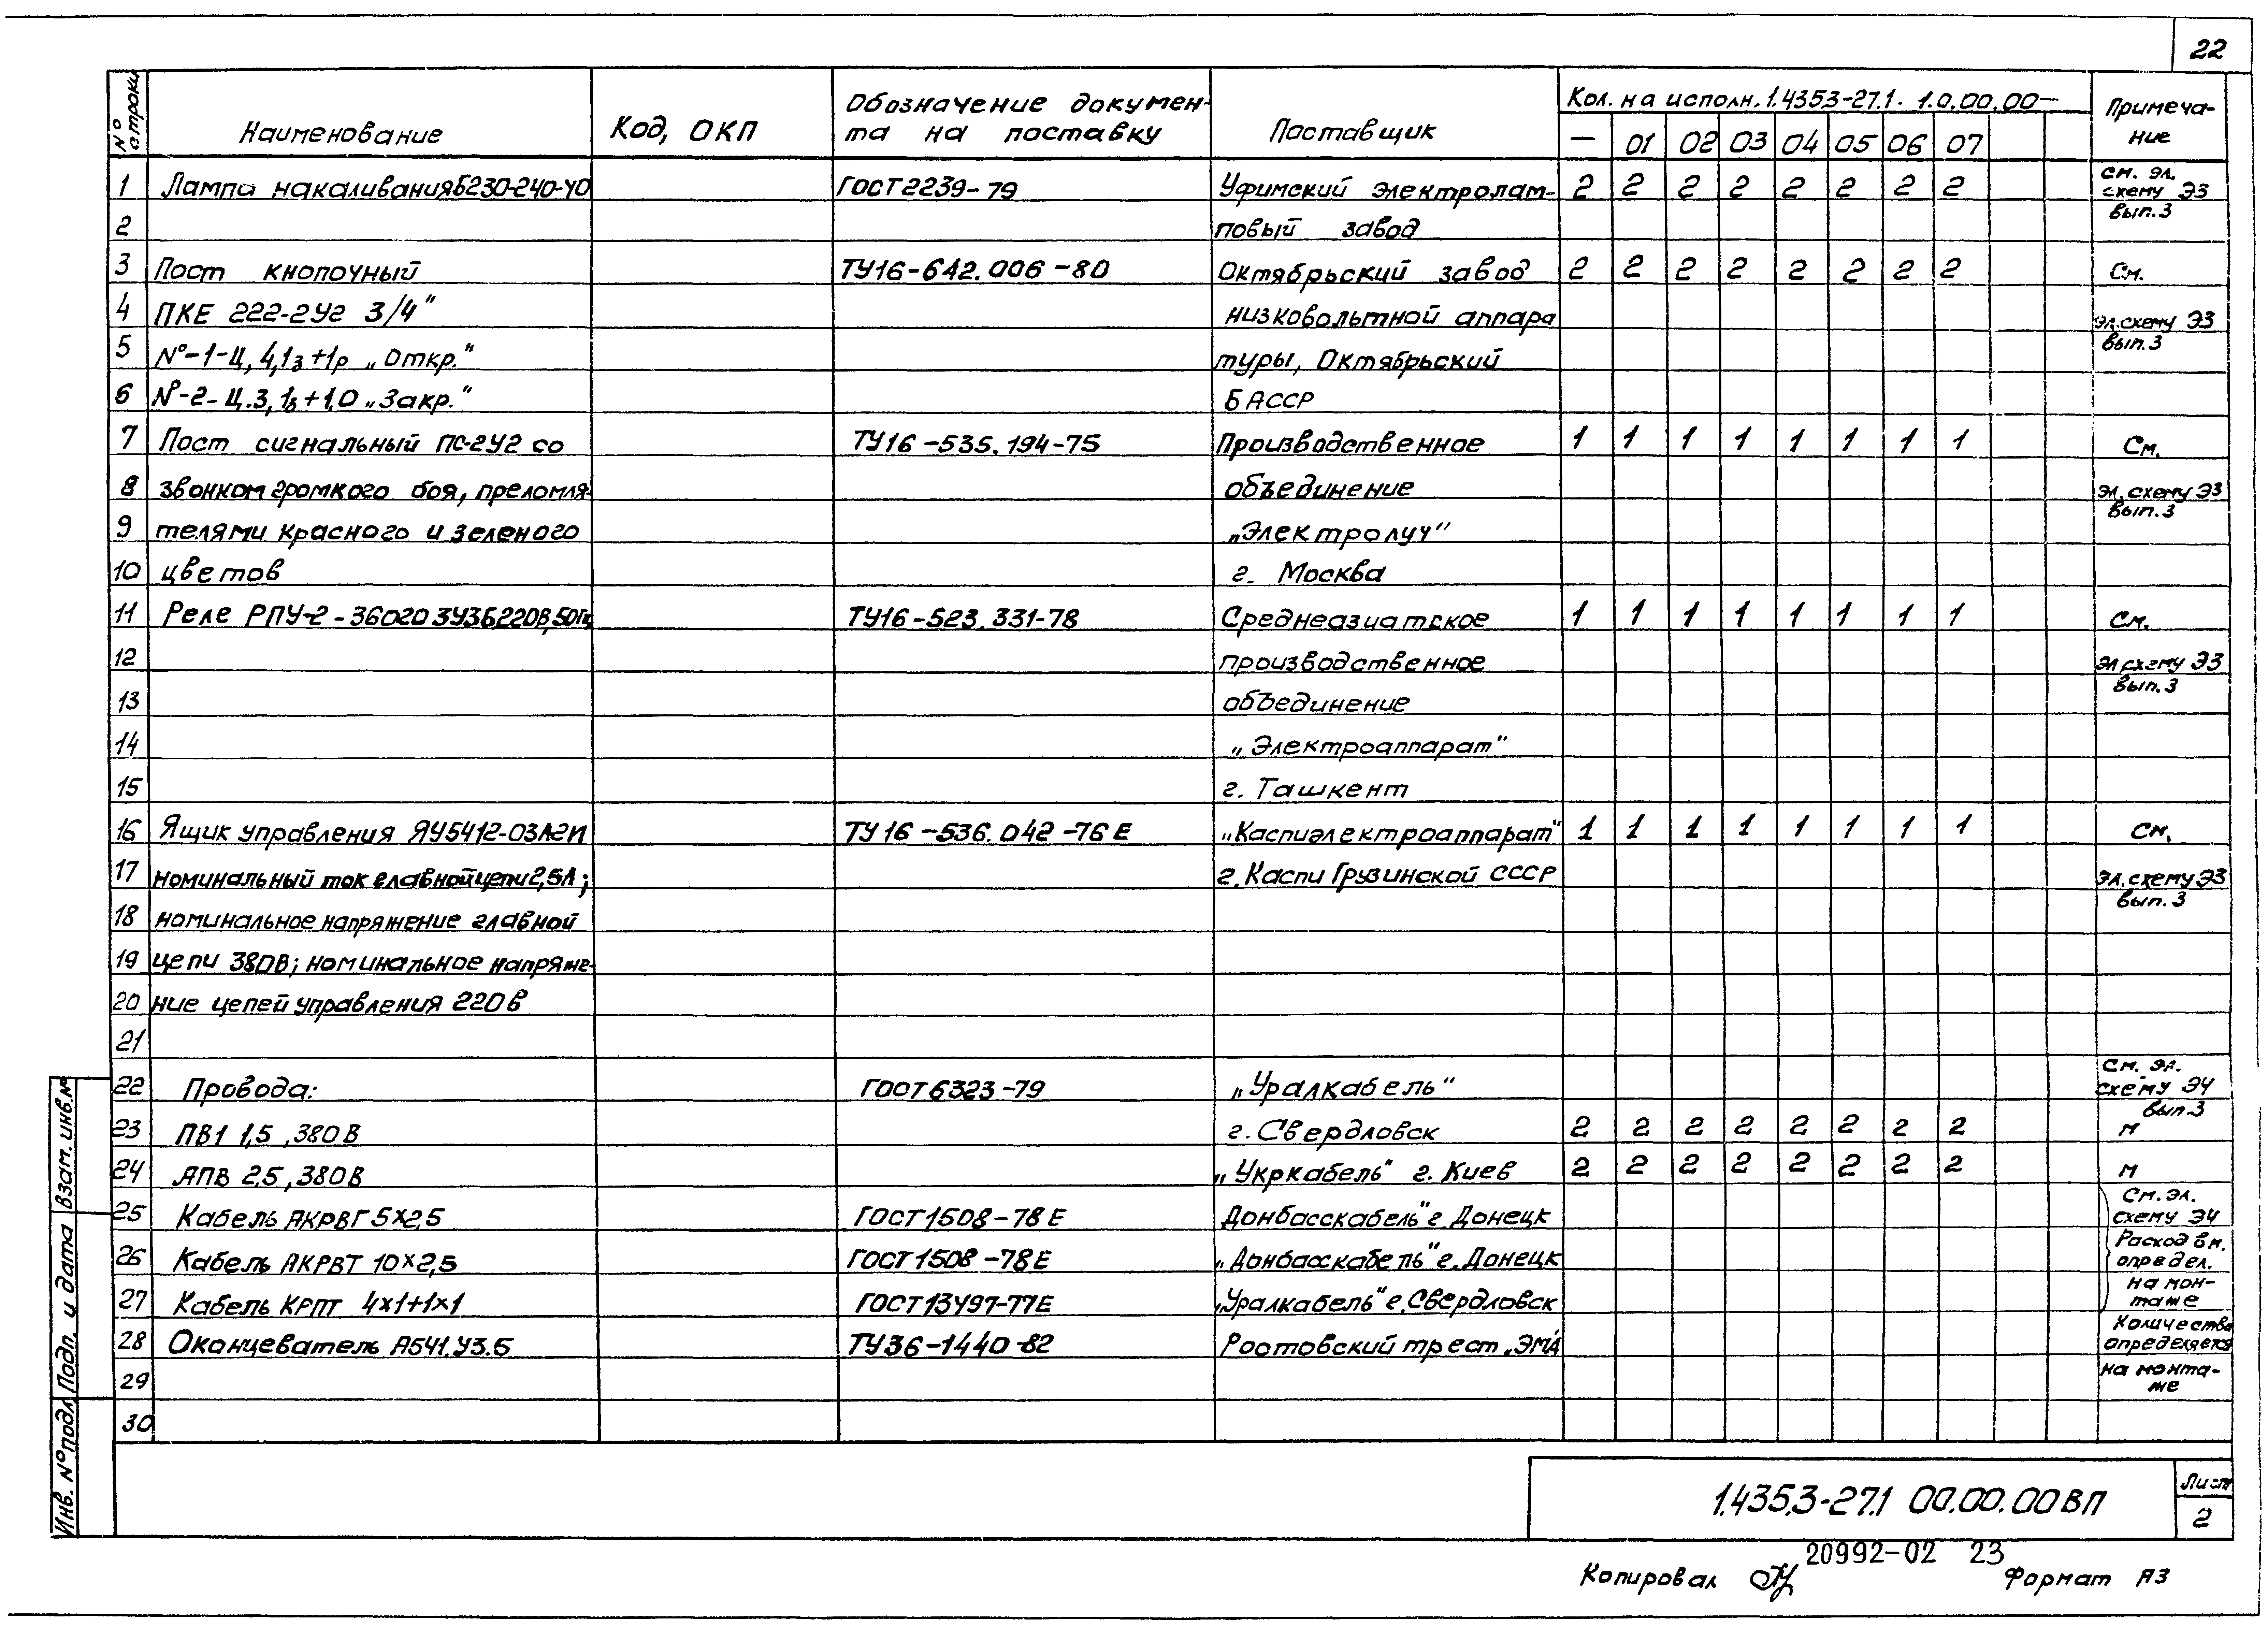 22
№ строки
Наименование
Код, ОКП
Обозначение докумен-
та на поставку
Поставщик
Кол. на исполн. 1.435.3-27.1. 1.0.00.00—
— 01 02 03 04 05 06 07
Примеча-
ние
1 Лампа накаливания Б230-240-40 ГОСТ 2239-79 Уфимский электролам- 2 2 2 2 2 2 2 2 см. эл.
схему Э3
вып.3
2 повый завод
3 Пост кнопочный ТУ16-642.006-80 Октябрьский завод 2 2 2 2 2 2 2 2 См.
4 ПКЕ 222-2У2 3/4" низковольтной аппара эл.схему Э3
вып.3
5 №-1-Ц,4,1з+1р „Откр." туры, Октябрьский
6 №-2-Ц.3, „Закр." БАССР
7 Пост сигнальный ПС-2У2 со ТУ16-535.194-75 Производственное 1 1 1 1 1 1 1 1 См.
8 звонком громкого боя, преломля- объединение эл. схему Э3
вып.3
9 телями красного и зеленого „Электролуч"
10 цветов г. Москва
11 Реле РПУ-2-36020 3У3Б,220В,50Гц ТУ16-523.331-78 Среднеазиатское 1 1 1 1 1 1 1 1 См.
12 производственное эл схему Э3
вып.3
13 объединение
14 „Электроаппарат"
15 г. Ташкент
16 Ящик управления ЯУ5412-03А2И ТУ16-536.042-76Е „Каспиэлектроаппарат" 1 1 1 1 1 1 1 1 См.
17 номинальный ток главной цепи 2,5А; г. Каспи Грузинской СССР эл.схему Э3
вып.3
18 номинальное напряжение главной
19 цепи 380В; номинальное напряже-
20 ние цепей управления 220в
21
22 Провода: ГОСТ 6323-79 „Уралкабель" См. эл.
схему Э4
вып.3
23 ПВ1 1,5, 380В г. Свердловск 2 2 2 2 2 2 2 2 м
24 АПВ 2.5, 380В „Укркабель" г. Киев 2 2 2 2 2 2 2 2 м
25 Кабель АКРВГ 5×2,5 ГОСТ 1508-78Е Донбасскабель" г. Донецк См. эл.
схему Э4
26 Кабель АКРВТ 10×2,5 ГОСТ 1508-78Е „Донбасскабель" г. Донецк Расход в м.
определ.
27 Кабель КРПТ 4×1+1×1 ГОСТ 13497-77Е „Уралкабель" г. Свердловск на мон-
таже
28 Оконцеватель А541.У3.5 ТУ36-1440-82 Ростовский трест „ЭМА Количество
определяется
29 на монта-
же
30
Взам. инв.№
Подп. и дата
Инв. № подл
1.435.3-27.1 00.00.00ВП
Лист
2
20992-02 23
Копировал
Формат А3